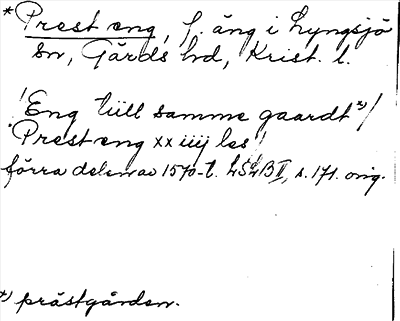 * Prest eng, f. äng i Lyngsjö
sn, Gärds hd, Krist. l.
! Eng till samme gaardt *)/
Prest eng xx iiij les !
förra delen av 1570-t. LSÄB II, s. 171. orig.
*) prästgården.